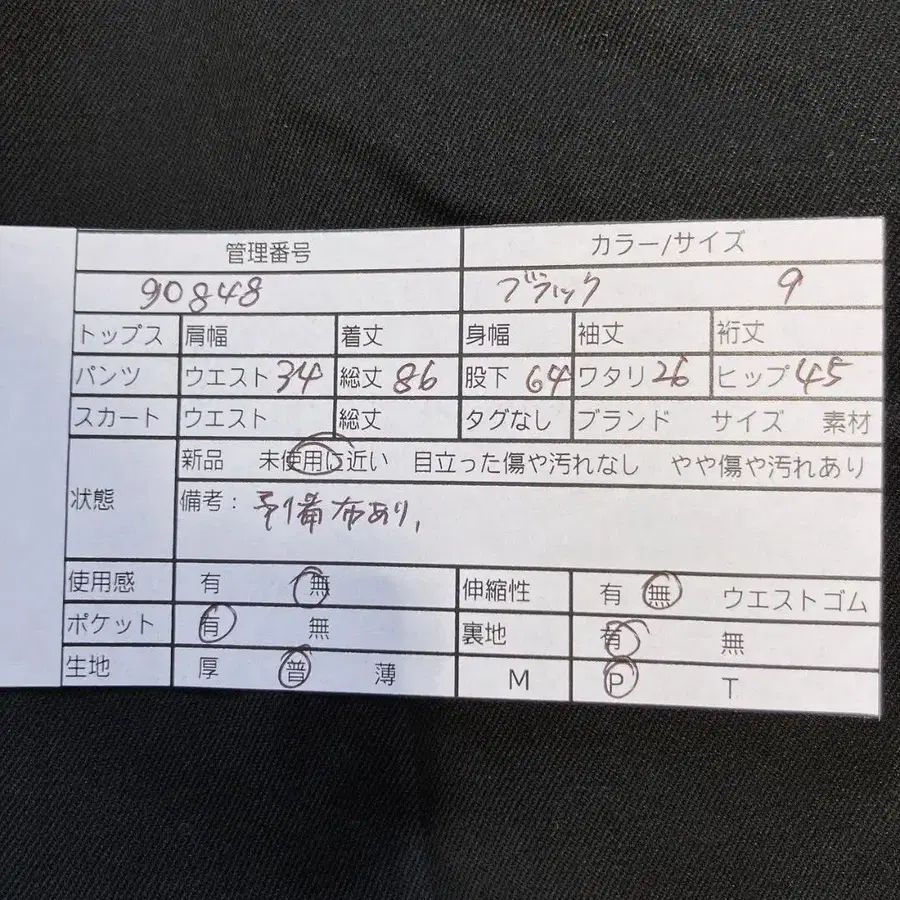 管理番号 カラー/サイズ
90848 ブラック 9
トップス 肩幅 着丈 身幅 袖丈 裄丈
パンツ ウエスト 34 総丈 86 股下 64 ワタリ 26 ヒップ 45
スカート ウエスト 総丈 タグなし ブランド サイズ 素材
状態 新品 未使用に近い 目立った傷や汚れなし やや傷や汚れあり
備考：予備布あり,
使用感 有 無 伸縮性 有 無 ウエストゴム
ポケット 有 無 裏地 有 無
生地 厚 普 薄 M P T